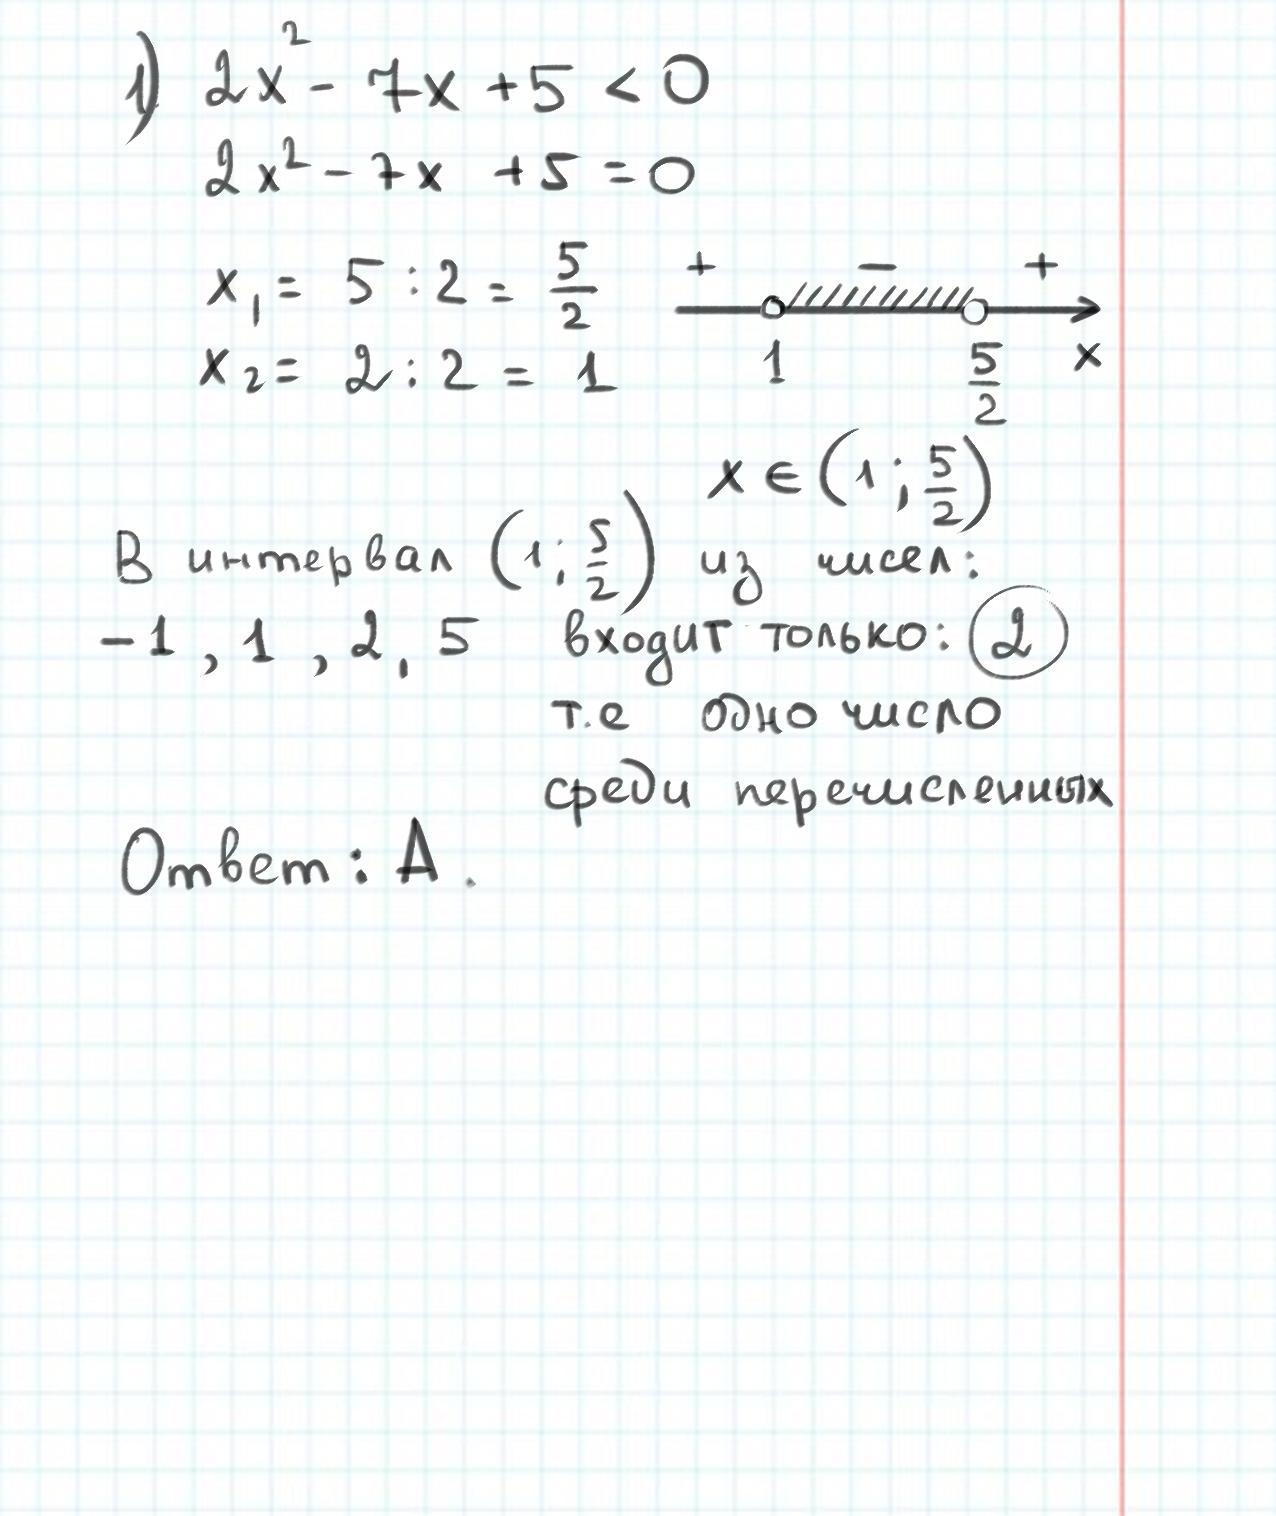 1) 2x² - 7x + 5 < 0
2x² - 7x + 5 = 0
x₁ = 5 : 2 = 5/2
x₂ = 2 : 2 = 1
+ − +
1 5/2 x
x ∈ (1; 5/2)
В интервал (1; 5/2) из чисел:
-1, 1, 2, 5 входит только: 2
т.е одно число
среди перечисленных
Ответ: А.